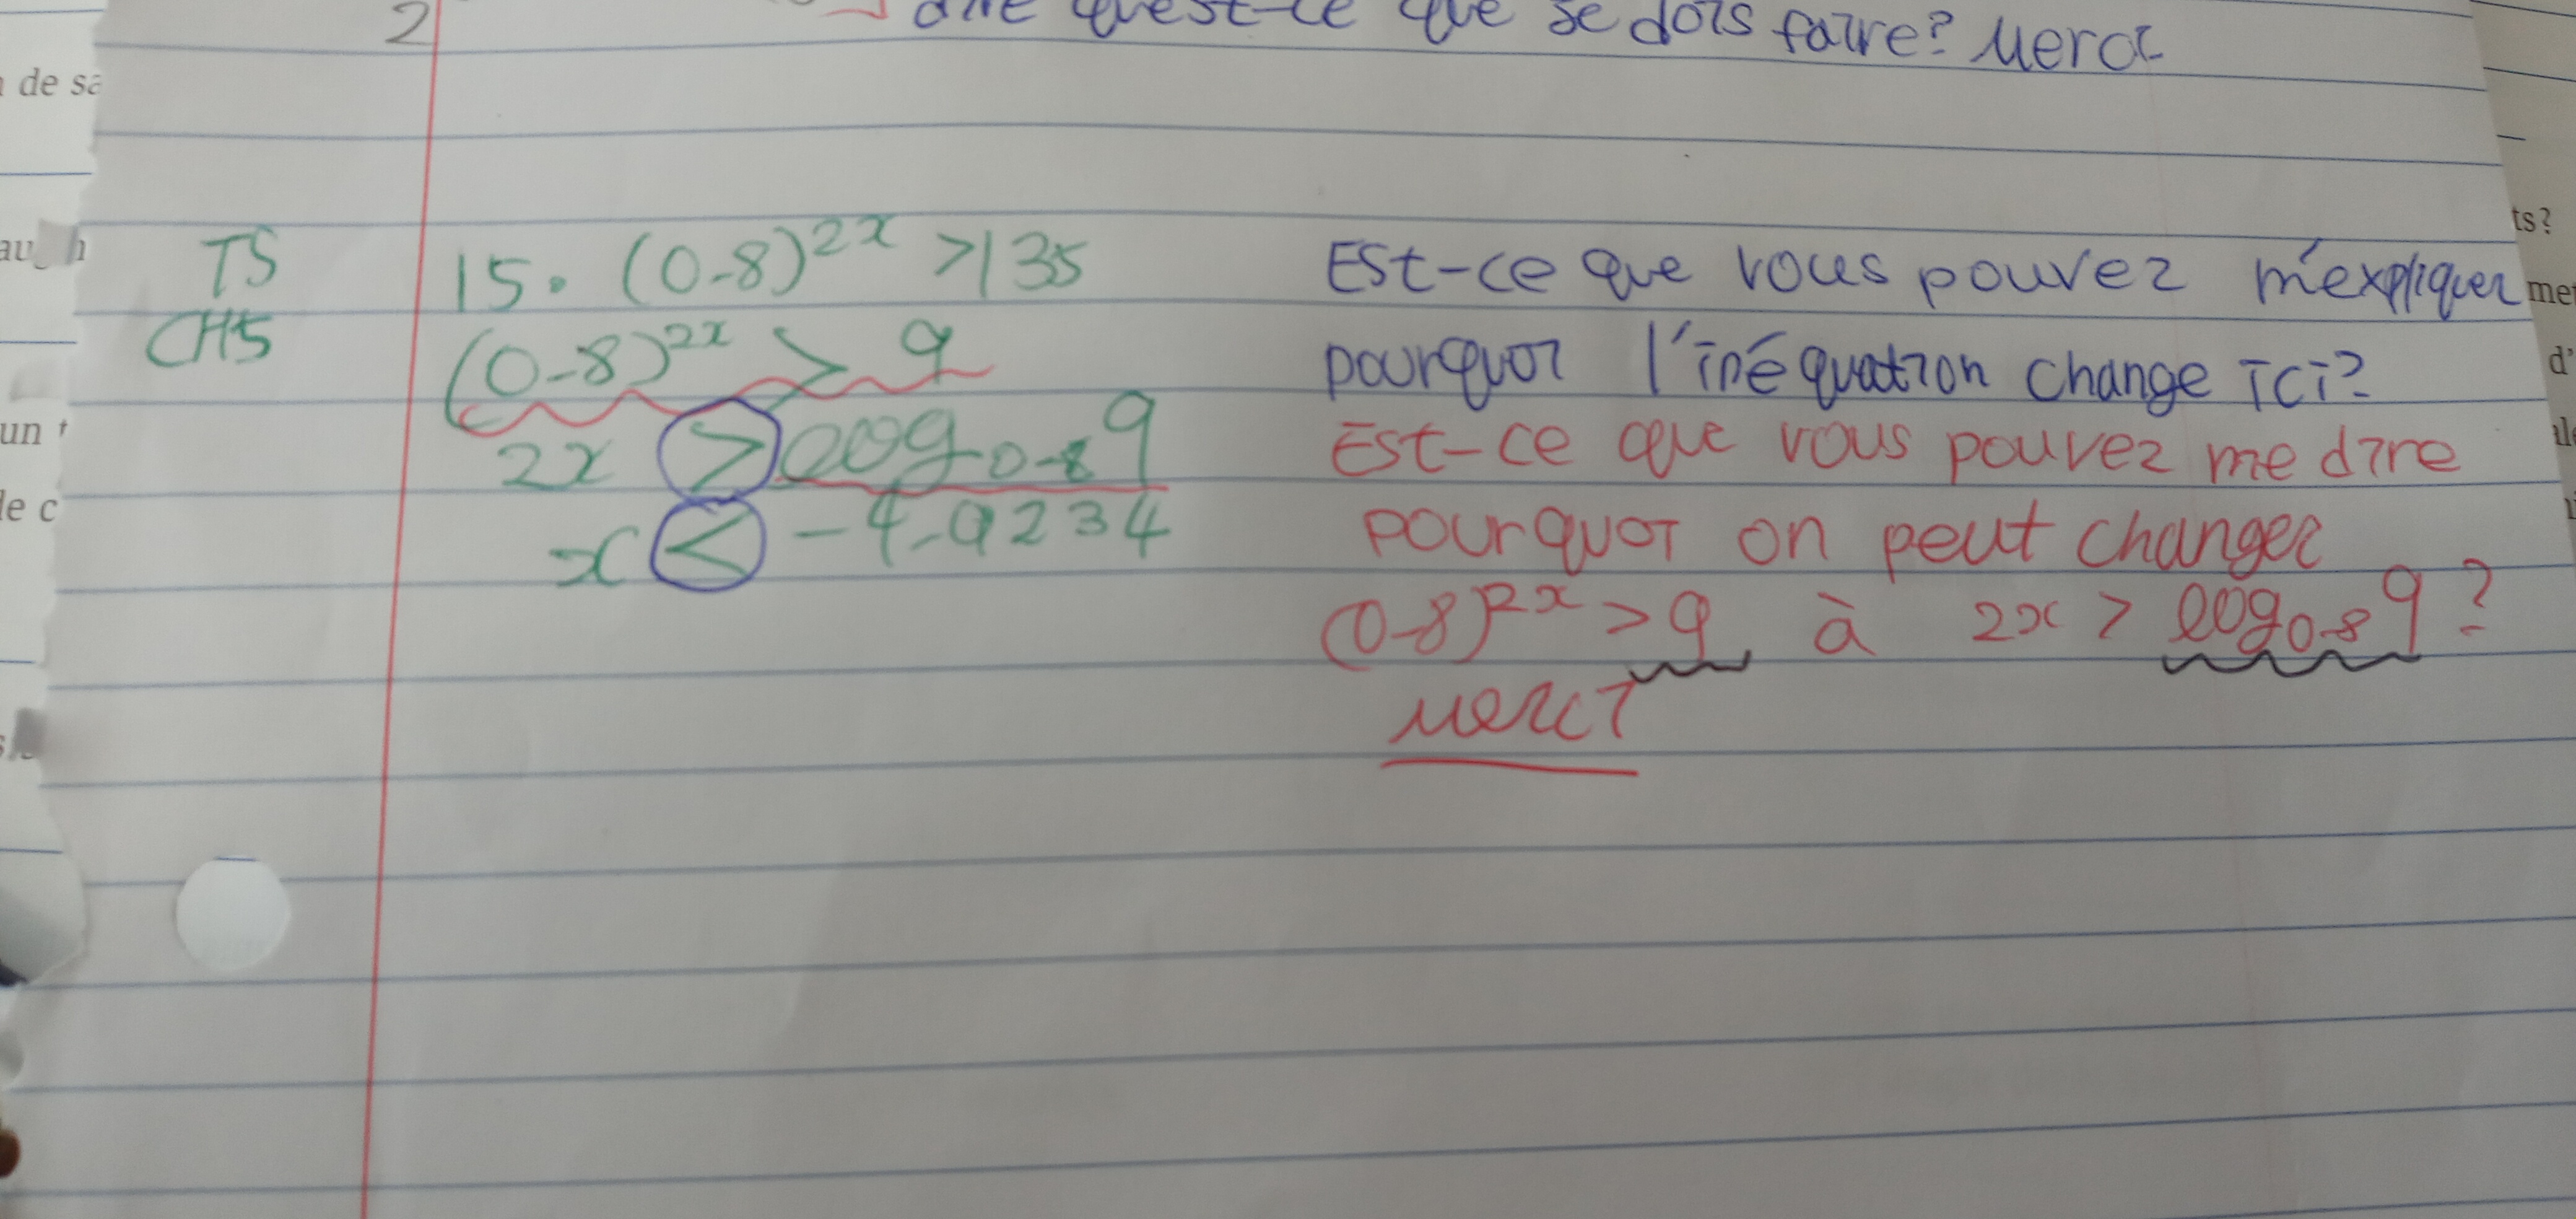 2
dire quest-ce que je dois faire? Merci
de sa
ts?
TS
15. (0.8)^2x >135
Est-ce que vous pouvez m'expliquer
CH5
(0.8)^2x > 9
pourquoi l'inéquation change ici?
2x > log_0.8 9
Est-ce que vous pouvez me dire
x < -4.9234
pourquoi on peut changer
(0.8)^2x > 9 à 2x > log_0.8 9?
Merci
un
le c
d'